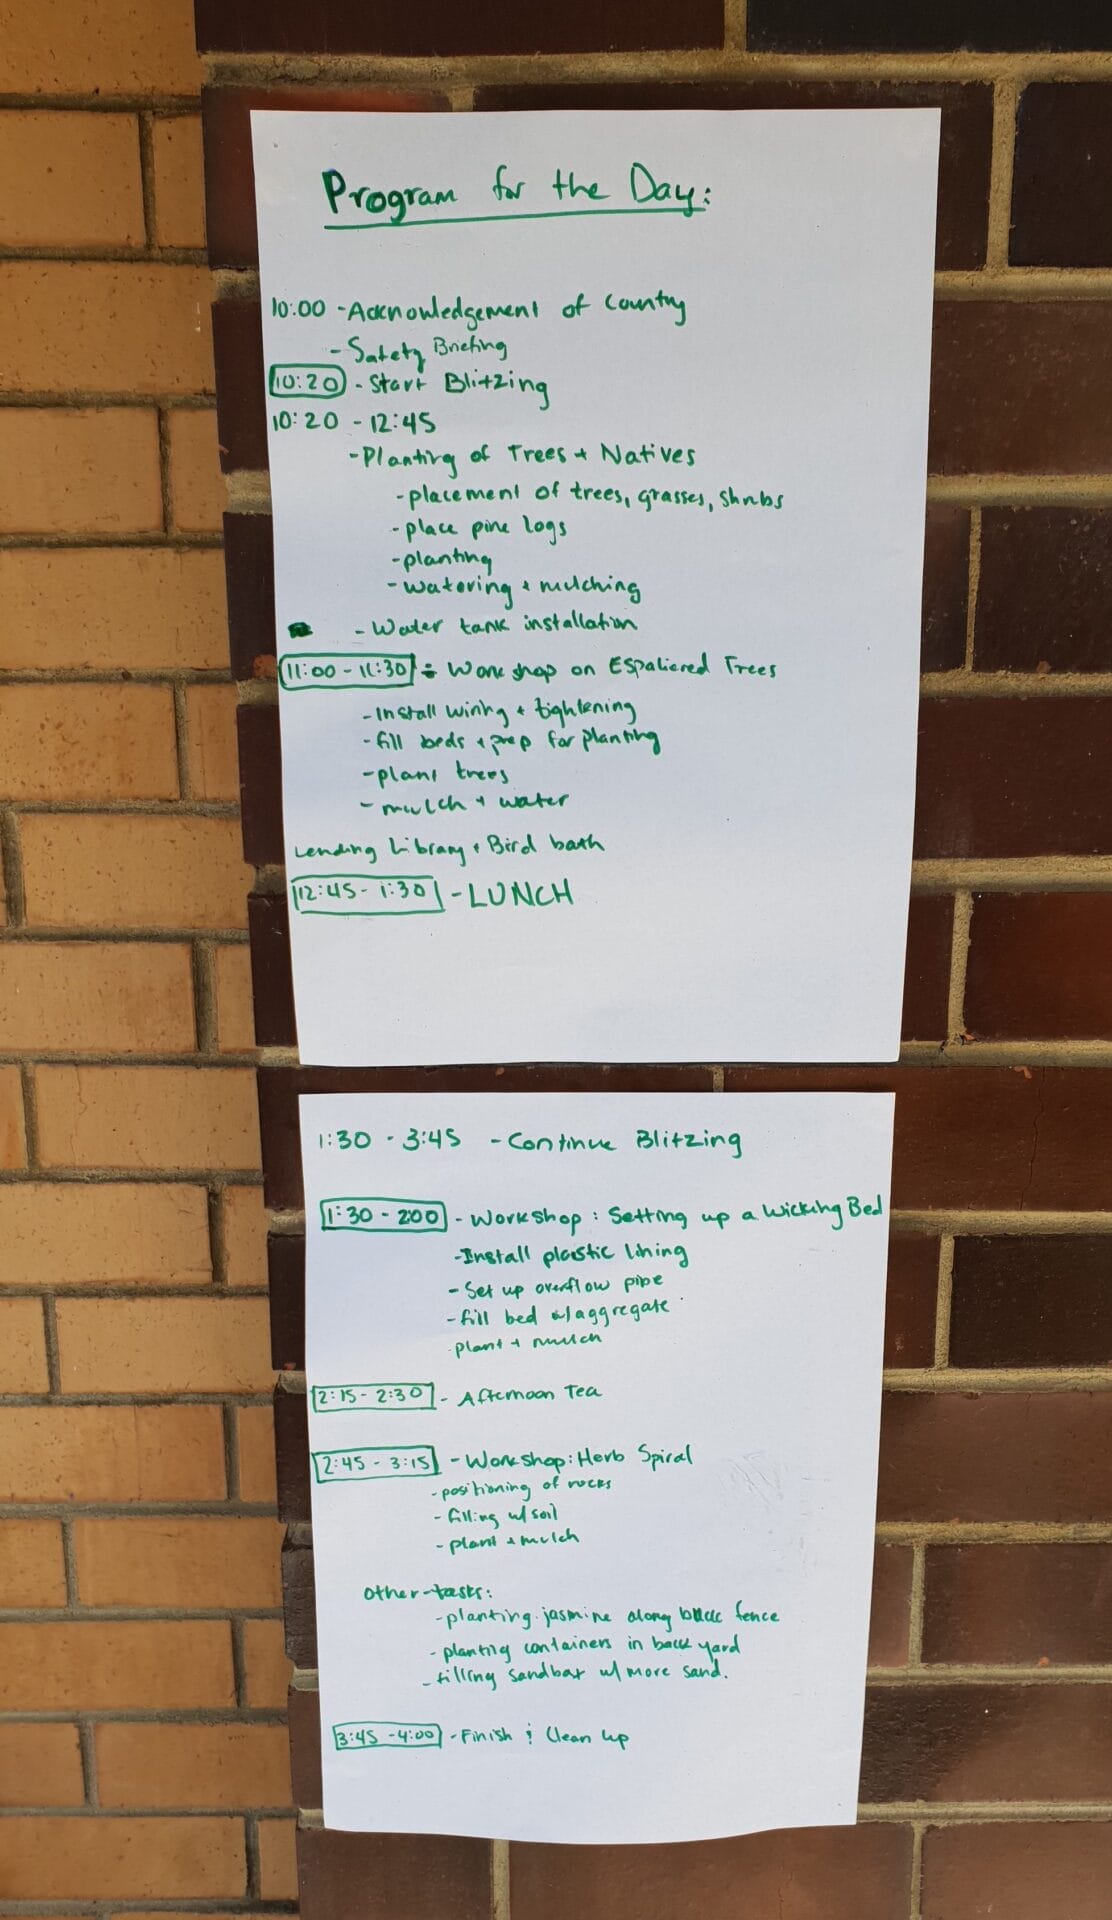 Program for the Day:
10:00 - Acknowledgement of Country
- Safety Briefing
10:20 - Start Blitzing
10:20 - 12:45
- Planting of Trees + Natives
- placement of trees, grasses, shrubs
- place pine logs
- planting
- watering + mulching
- Water tank installation
11:00 - 11:30 - Workshop on Espaliered Trees
- Install wiring + tightening
- fill beds + prep for planting
- plant trees
- mulch + water
Lending Library + Bird bath
12:45 - 1:30 - LUNCH
1:30 - 3:45 - Continue Blitzing
1:30 - 200 - Workshop: Setting up a Wicking Bed
- Install plastic lining
- Set up overflow pipe
- fill bed w/ aggregate
- plant + mulch
2:15 - 2:30 - Afternoon Tea
2:45 - 3:15 - Workshop: Herb Spiral
- positioning of rocks
- filling w/ soil
- plant + mulch
Other tasks:
- planting jasmine along back fence
- planting containers in back yard
- filling sandbox w/ more sand.
3:45 - 4:00 - Finish & Clean up